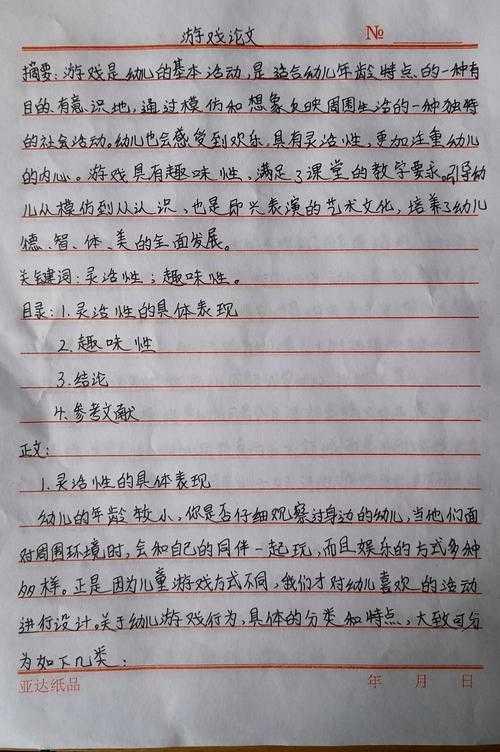 游戏论文
№
摘要:游戏是幼儿的基本活动,是适合幼儿年龄特点的一种有
目的有意识地,通过模仿和想象反映周围生活的一种独特
的社会活动。幼儿也会感受到欢乐,具有灵活性,更加注重幼儿
的内心。游戏具有趣味性,满足了课堂的教学要求。引导幼
儿从模仿到从认识,也是即兴表演的艺术文化,培养了幼儿
德、智、体、美的全面发展。
关键词:灵活性;趣味性。
目录:1.灵活性的具体表现
2.趣味性
3.结论
4.参考文献
正文:
1.灵活性的具体表现
幼儿的年龄较小,你是否仔细观察过身边的幼儿,当他们面
对周围环境时,会和自己的同伴一起玩,而且娱乐的方式多种
多样。正是因为儿童游戏方式不同,我们才对幼儿喜欢的活动
进行设计。关于幼儿游戏行为,具体的分类和特点,大致可分
为如下几类:
亚达纸品 年 月 日